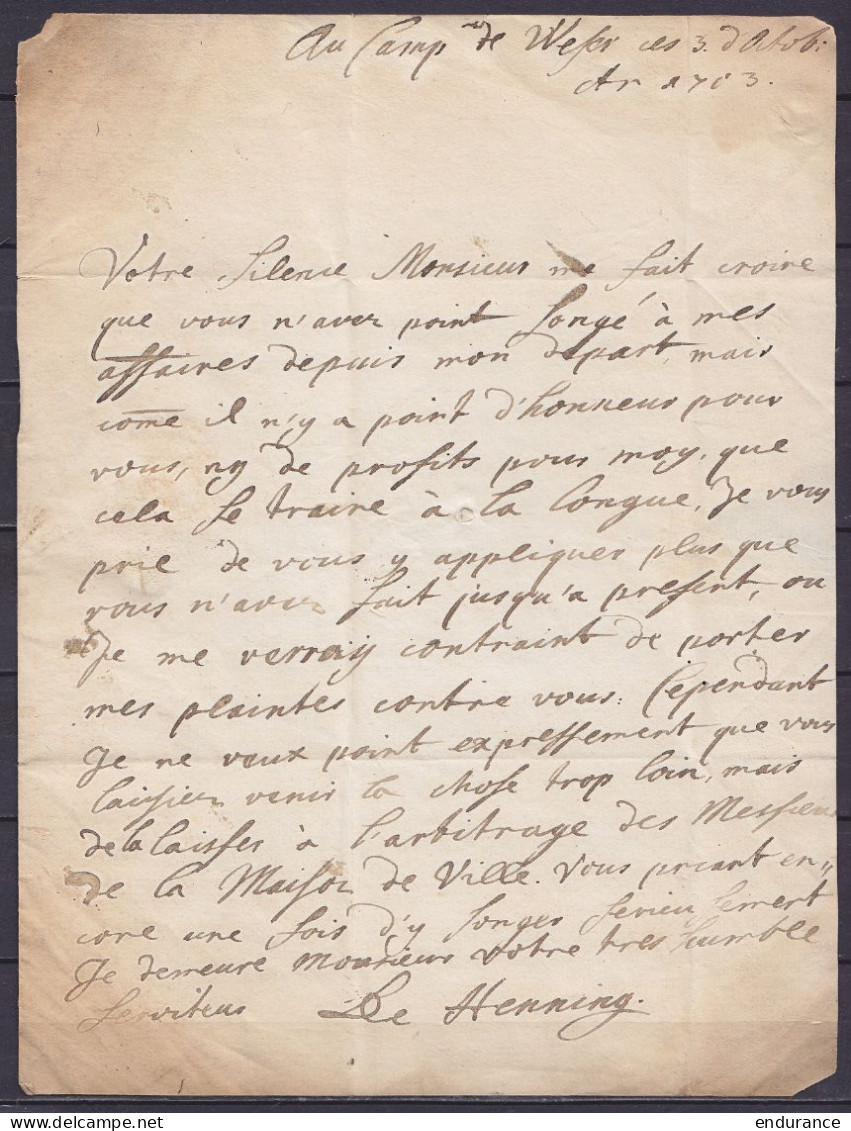 Au Camp de Weser ces 3. d'Octob:
An 1703.
Votre silence Monsieur me fait croire
que vous n'avez point songé à mes
affaires depuis mon depart, mais
come il n'y a point d'honneur pour
vous, ny de profits pour moy, que
cela se traine à la longue, Je vous
prie de vous y appliquer plus que
vous n'avez fait jusqu'a present, ou
Je me verray contraint de porter
mes plaintes contre vous: Cependant
Je ne veux point expressement que vous
laissiez venir la chose trop loin, mais
de la laisser à l'arbitrage des Messieurs
de la Maison de Ville. Vous priant en"
core une fois d'y songer serieusement
Je demeure Monsieur votre tres humble
serviteur De Henning.
delcampe.net
endurance